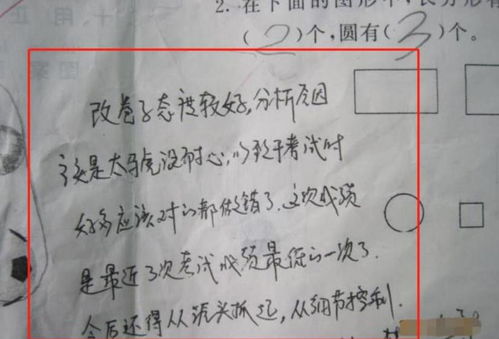 2. 在下面的图形中,长方形有
(2)个,圆有(3)个。
改卷子态度较好,分析原因
该是太马虎没耐心,以至于考试时
好多应该对的都做错了。这次成绩
是最近3次考试成绩最低的一次了.
今后还得从源头抓起,从细节控制.